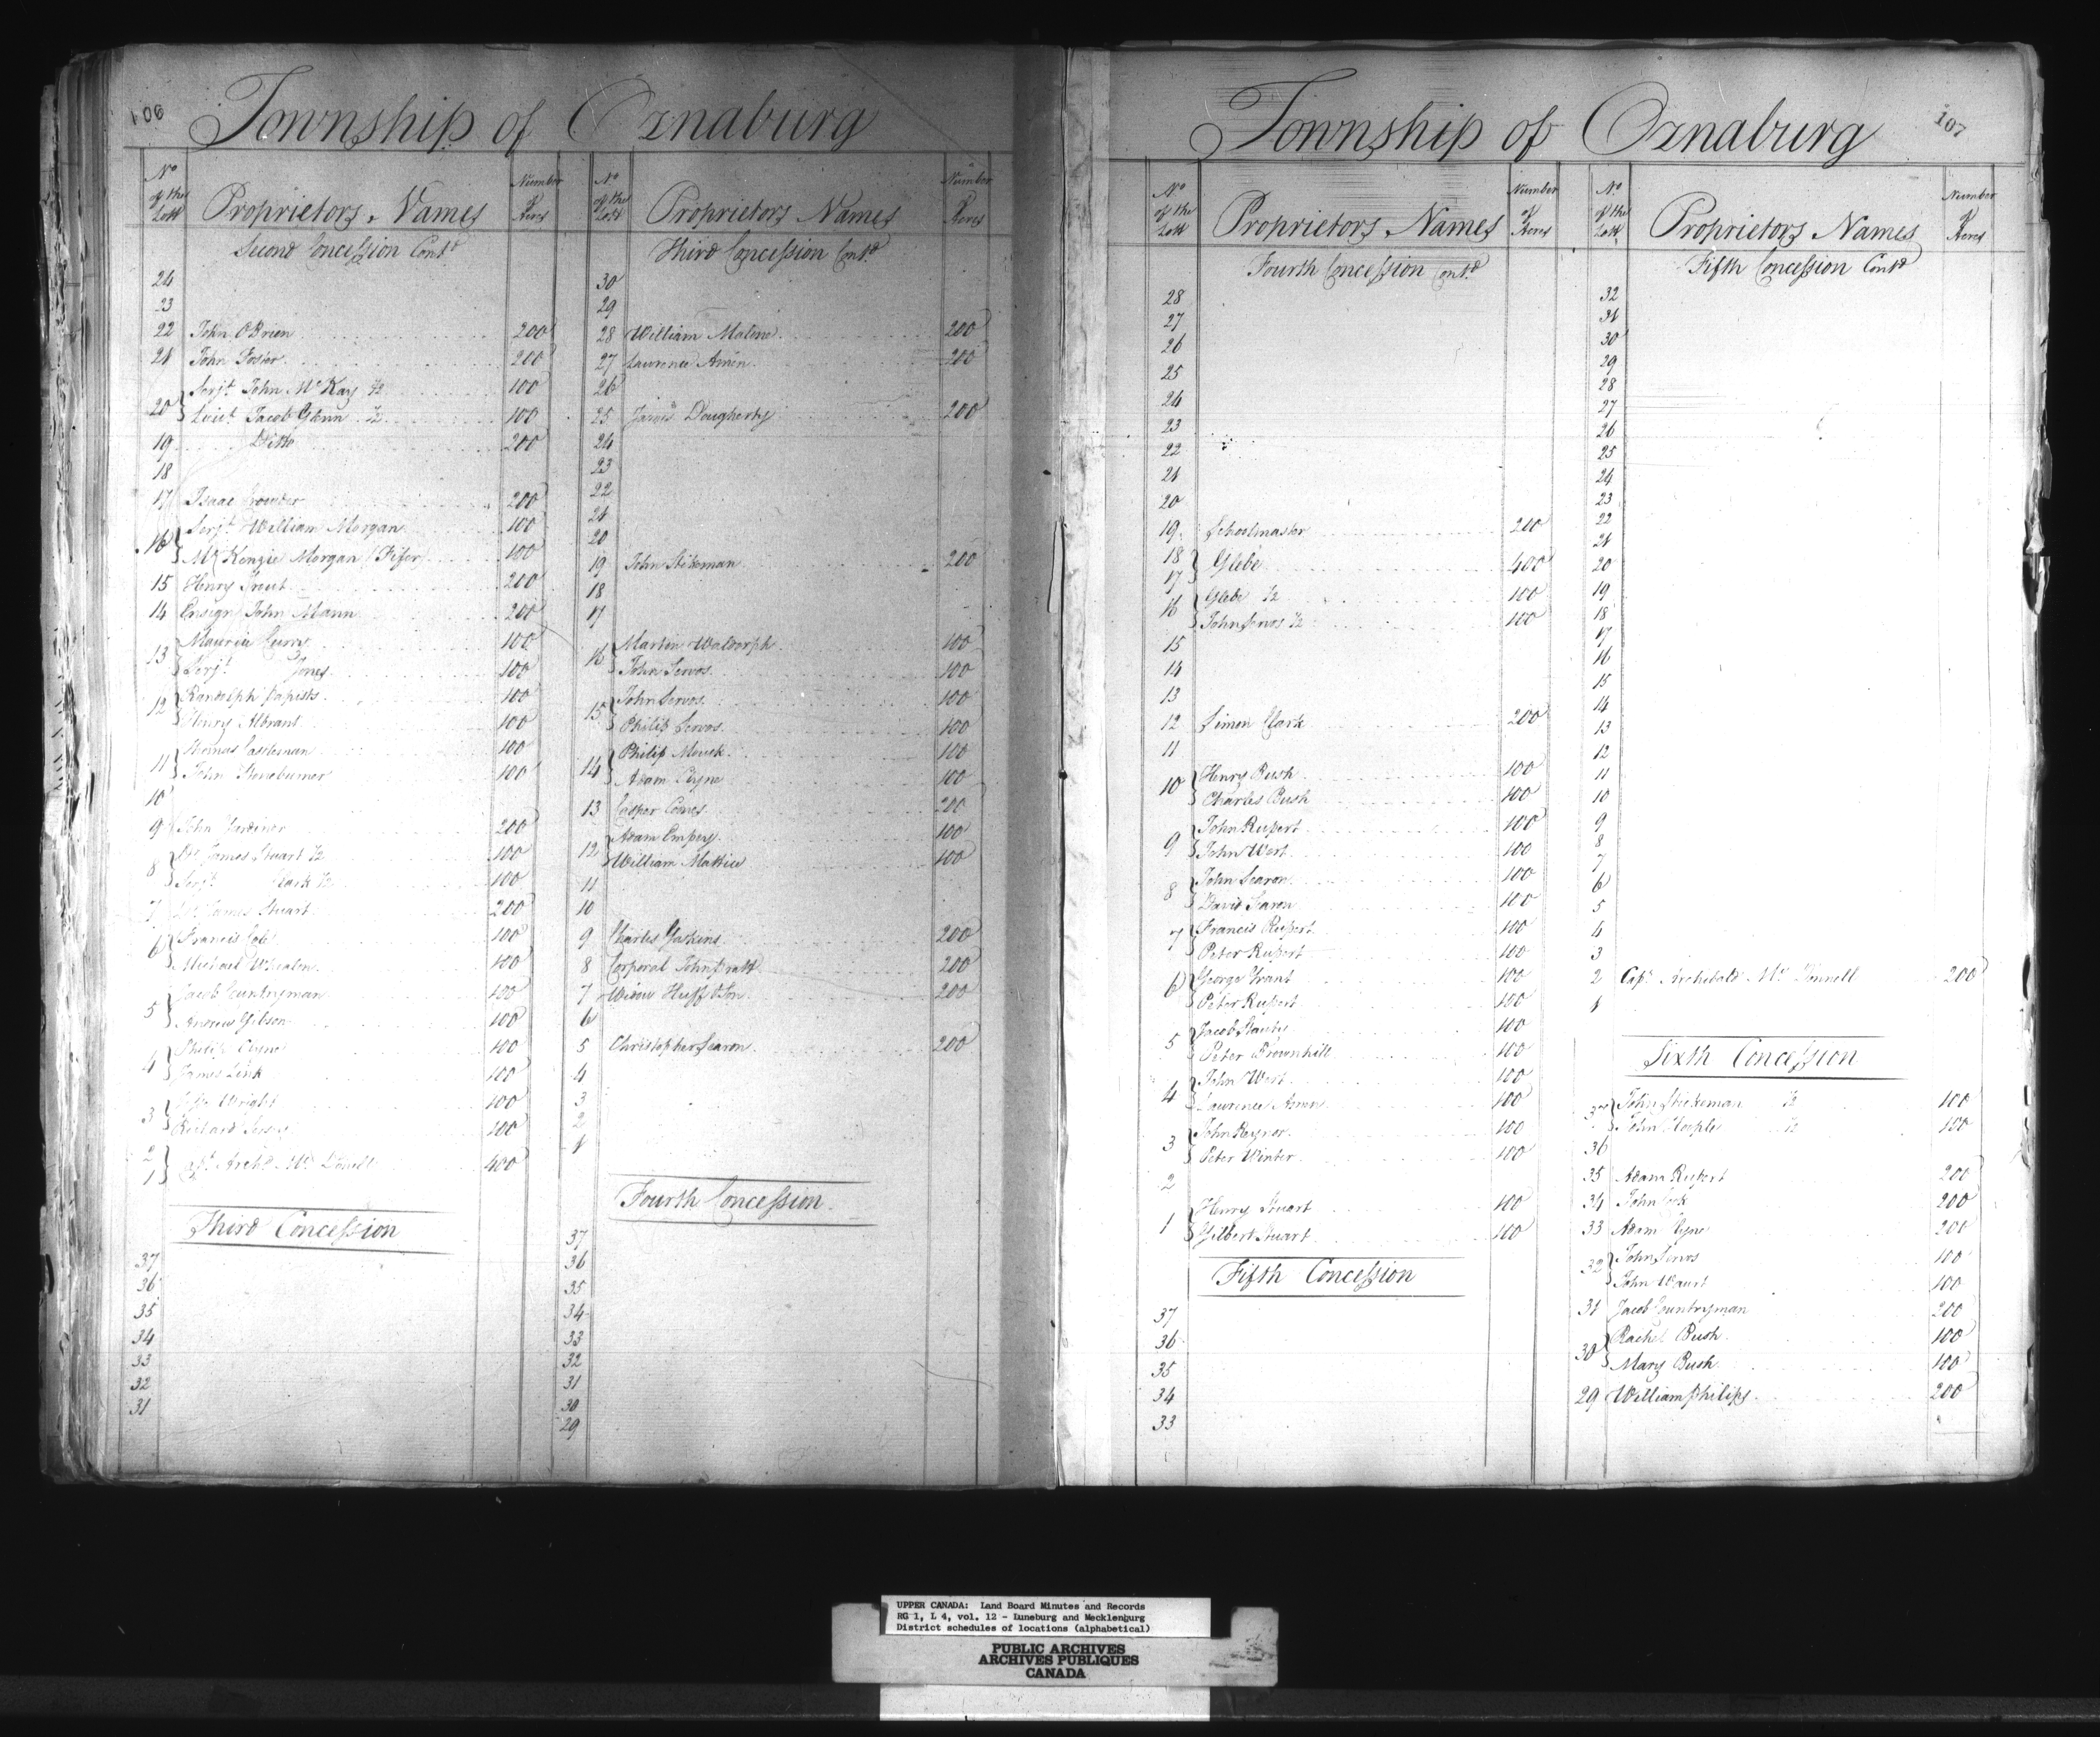 106
Township of Oznaburg
No of the Lott
Proprietors Names
Number of Acres
Second Concession Contd
24
23
22 John O'Brien 200
21 John Foster 200
20 Serjt John McKay ½ 100
Lieut Jacob Glenn ½ 100
19 Ditto 200
18
17 Isaac Crowder 200
16 Serjt William Morgan 100
McKenzie Morgan (Fifer) 100
15 Henry Trout 200
14 Ensign John Mann 200
13 Maurice Curry 100
Serjt Jones 100
12 Randolph Papists 100
Henry Albrant 100
11 Thomas Casselman 100
John Stoneburner 100
10
9 John Gardinor 200
8 Dr James Stuart ½ 100
Serjt Clark ½ 100
7 Dr James Stuart 200
6 Francis Cole 100
Michael Whealen 100
5 Jacob Countryman 100
Andrew Gibson 100
4 Philip Cryne 100
James Link 100
3 Wright 100
Richard 100
2
1 Capt Archd McDonell 400
Third Concession
37
36
35
34
33
32
31
No of the Lott
Proprietors Names
Number of Acres
Third Concession Contd
30
29
28 William Malone 200
27 Lawrence Amen 200
26
25 James Dougherty 200
24
23
22
21
20
19 John Stikeman 200
18
17
16 Martin Waldorph 100
John Servos 100
15 John Servos 100
Philip Servos 100
14 Philip Mouck 100
Adam Cryne 100
13 Casper Comes 200
12 Adam Empey 100
William Mattice 100
11
10
9 Charles Gaskins 200
8 Corporal John Pratt 200
7 Widow Huff & Son 200
6
5 Christopher Searon 200
4
3
2
1
Fourth Concession
37
36
35
34
33
32
31
30
29
107
Township of Oznaburg
No of the Lott
Proprietors Names
Number of Acres
Fourth Concession Contd
28
27
26
25
24
23
22
21
20
19 Schoolmaster 200
18
17 Glebe 400
16 Glebe ½ 100
John Servos ½ 100
15
14
13
12 Simon Clark 200
11
10 Henry Bush 100
Charles Bush 100
9 John Rupert 100
John Wert 100
8 John Searon 100
David Searon 100
7 Francis Rupert 100
Peter Rupert 100
6 George Grant 100
Peter Rupert 100
5 Jacob 100
Peter Brownhill 100
4 John Wert 100
Lawrence Amen 100
3 John Raynor 100
Peter Winter 100
2
1 Henry Stuart 100
Gilbert Stuart 100
Fifth Concession
37
36
35
34
33
No of the Lott
Proprietors Names
Number of Acres
Fifth Concession Contd
32
31
30
29
28
27
26
25
24
23
22
21
20
19
18
17
16
15
14
13
12
11
10
9
8
7
6
5
4
3
2 Capt Archibald McDonnell 200
1
Sixth Concession
37 John Stickeman ½ 100
John Hople ½ 100
36
35 Adam Rupert 200
34 John Cook 200
33 Adam Cryne 200
32 John Servos 100
John Waurt 100
31 Jacob Countryman 200
30 Rachel Bush 100
Mary Bush 100
29 William Philips 200
UPPER CANADA: Land Board Minutes and Records
RG 1, L 4, vol. 12 - Luneburg and Mecklenburg
District schedules of locations (alphabetical)
PUBLIC ARCHIVES
ARCHIVES PUBLIQUES
CANADA